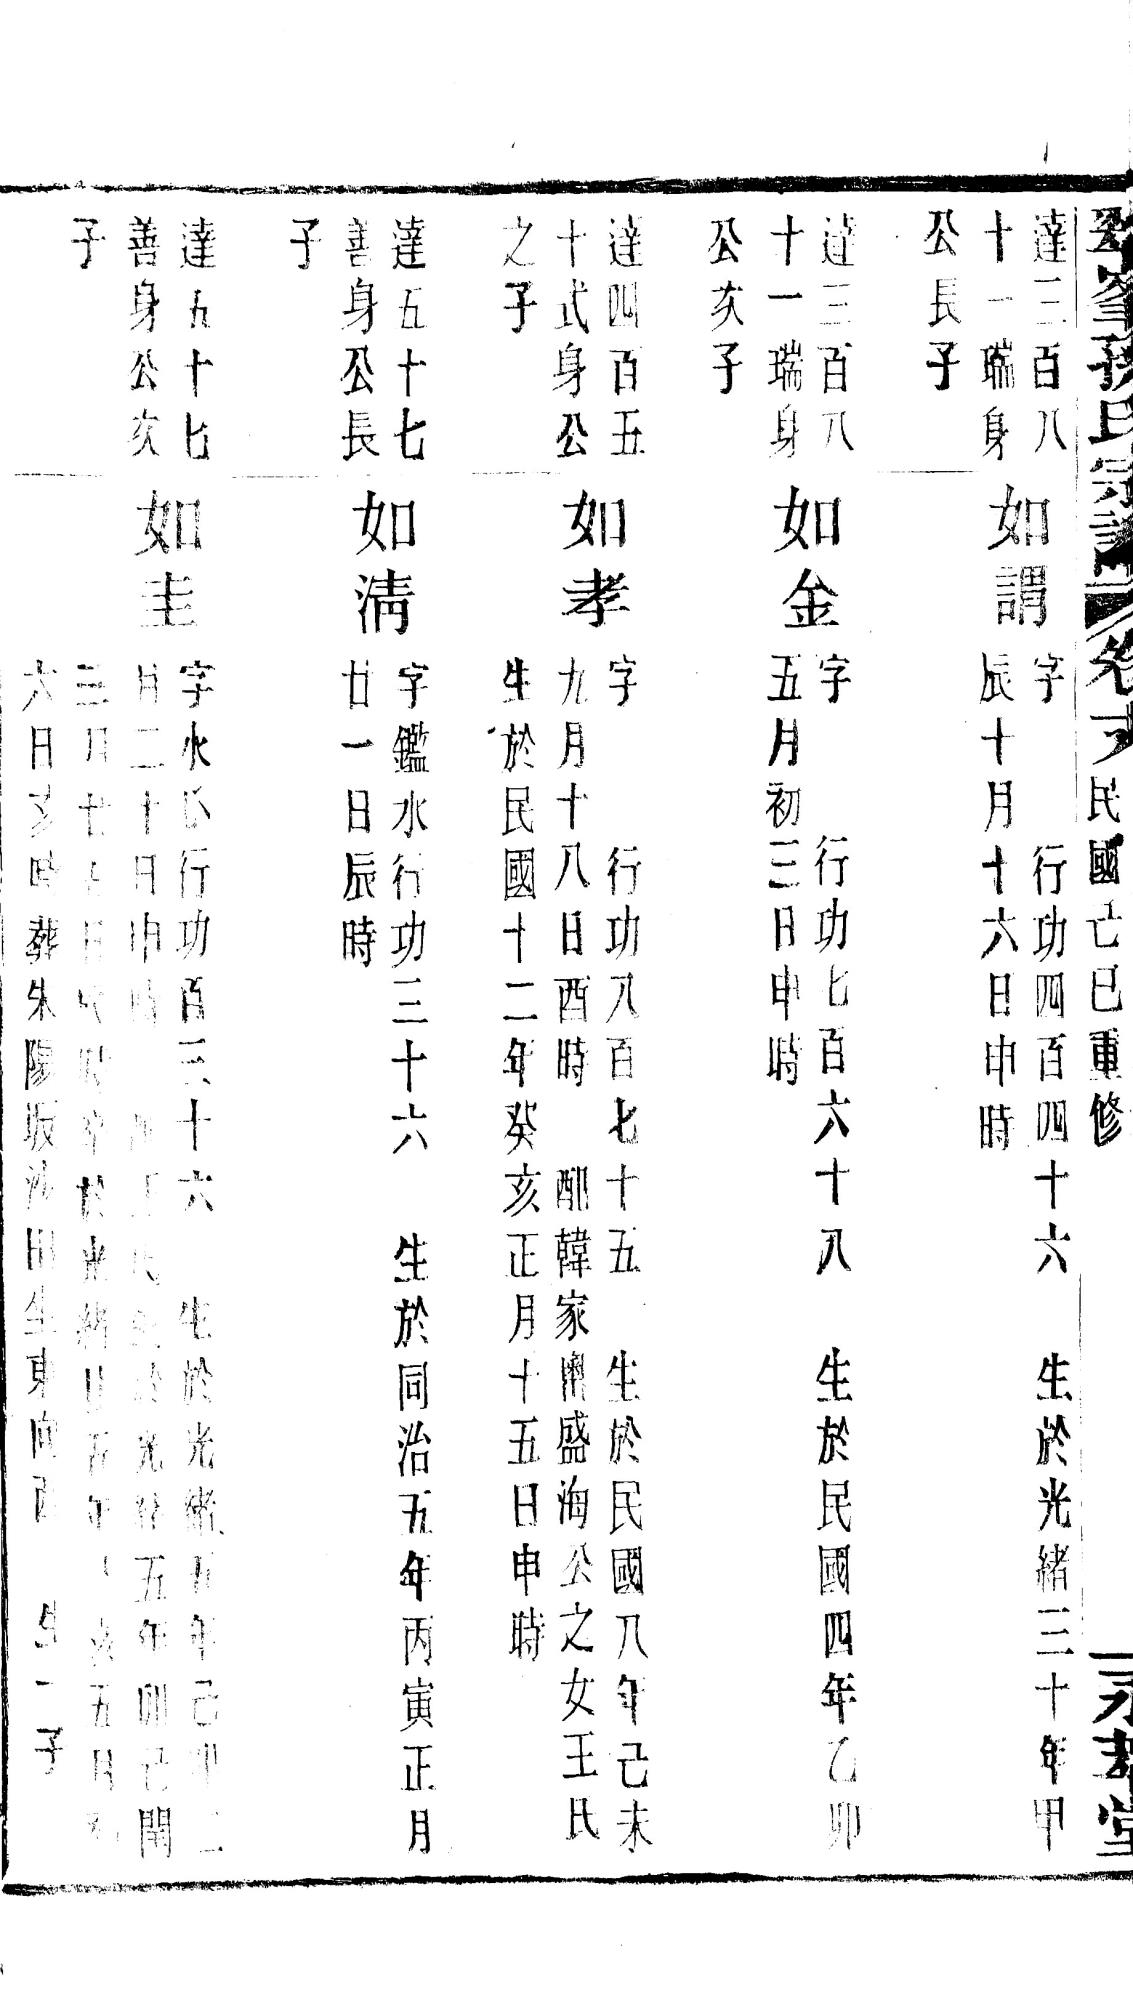 峯孫氏宗譜 卷 民國亡巳重修 永 堂
達三百八
十一瑞身
公長子
如謂
字 行功四百四十六 生於光緒三十年甲
辰十月十六日申時
達三百八
十一瑞身
公次子
如金
字 行功七百六十八 生於民國四年乙卯
五月初三日申時
達四百五
十式身公
之子
如孝
字 行功八百七十五 生於民國八年己未
九月十八日酉時 配韓家 盛海公之女王氏
生於民國十二年癸亥正月十五日申時
達五十七
善身公長
子
如清
字鑑水行功三十六 生於同治五年丙寅正月
廿一日辰時
達五十七
善身公次
子
如圭
字水 行功百三十六 生於光緒五年己卯二
月二十日申時 氏 於光緒五年卯己閏
三月廿 日 時卒於光緒廿五年 亥五月初
六日亥時葬朱陽坂沙田坐東向西 生一子